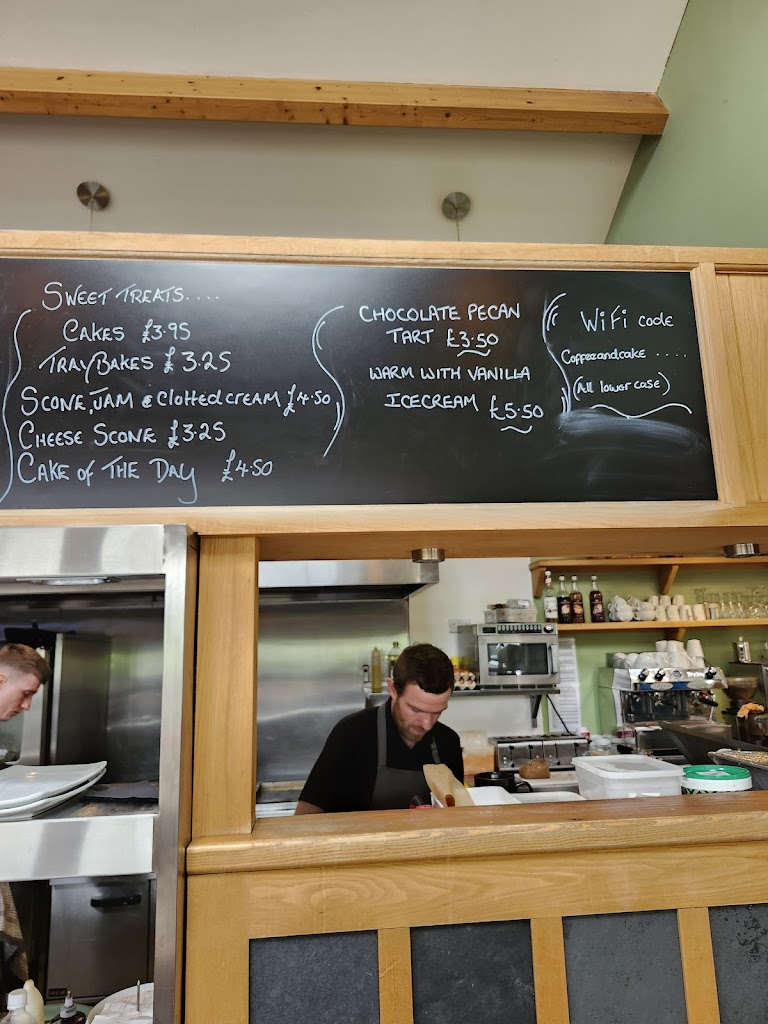 SWEET TREATS....
CAKES £3.95
TRAYBAKES £3.25
SCONE, JAM & Clotted cream £4.50
CHEESE SCONE £3.25
CAKE OF THE DAY £4.50
CHOCOLATE PECAN
TART £3.50
WARM WITH VANILLA
ICECREAM £5.50
WiFi code
Coffeeandcake ....
(All lower case)